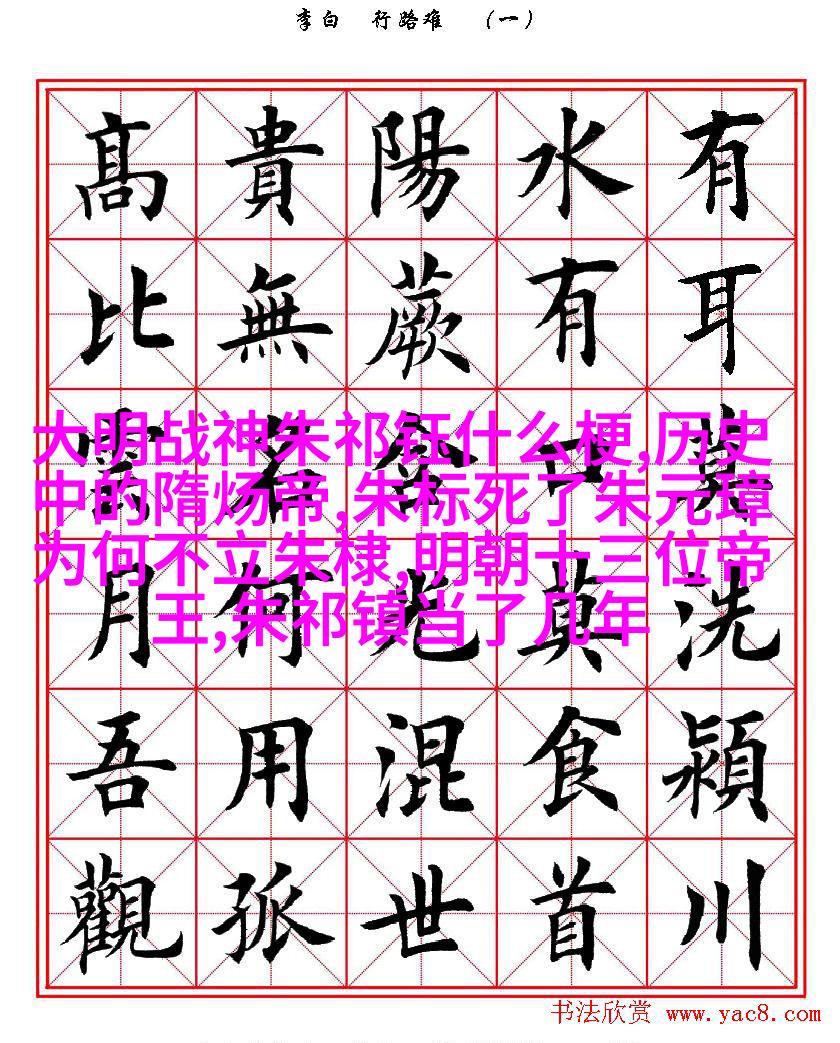 李白 行路难 （一）
有耳莫洗潁川
水有口莫食首
陽蕨含光混世
貴無名何用孤
髙比雲月吾觀
大明战神朱祁钰什么梗,历史
中的隋炀帝,朱标死了朱元璋
为何不立朱棣,明朝十三位帝
王,朱祁镇当了几年
书法欣赏 www.yac8.com